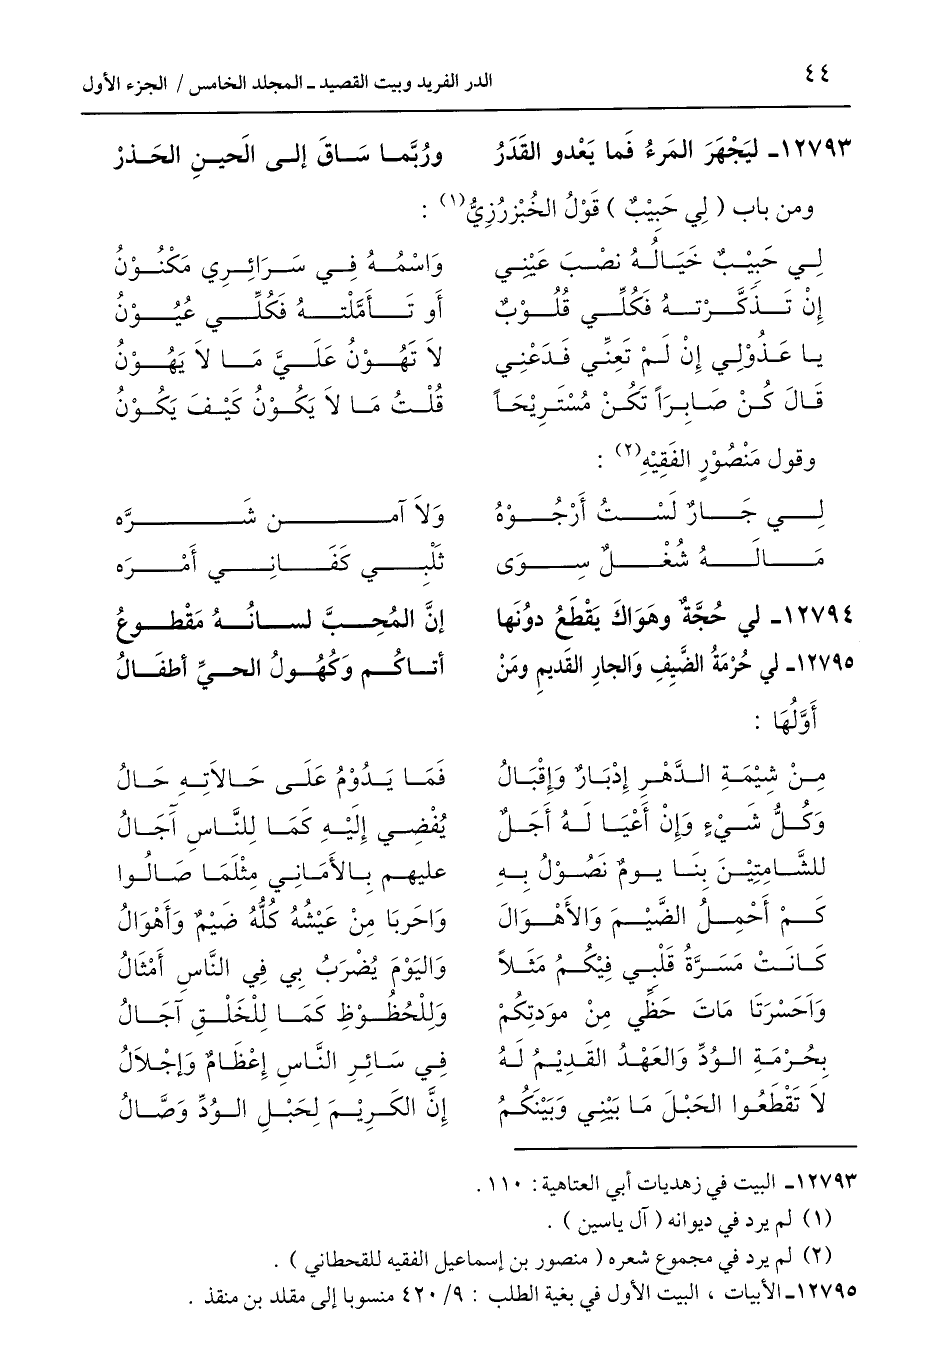 ٤٤ الدر الفريد وبيت القصيد ـ المجلد الخامس / الجزء الأول
١٢٧٩٣ـ لَيَجْهَرَ المَرءُ فَما يَعْدو القَدَرُ ورُبَّما سَاقَ إلى الحَينِ الحَذرْ
ومن باب ( لِي حَبِيْبٌ ) قَوْلُ الخُبْزرُزِيُّ(١) :
لِي حَبِيْبٌ خَيَالُهُ نصْبَ عَيْنِي وَاسْمُهُ فِي سَرَائِرِي مَكْنُوْنُ
إنْ تَذَكَّرْتهُ فَكُلِّي قُلُوْبٌ أو تَأَمَّلتهُ فَكُلِّي عُيُوْنُ
يا عَذُوْلِي إنْ لَمْ تَعنِّي فَدَعْنِي لاَ تَهُوْنُ عَلَيَّ مَا لاَ يَهُوْنُ
قَالَ كُنْ صَابِرَاً تَكُنْ مُسْتَرِيْحَاً قُلْتُ مَا لاَ يَكُوْنُ كَيْفَ يَكُوْنُ
وقول مَنْصُوْرِ الفَقِيْهِ(٢) :
لِي جَارٌ لَسْتُ أَرْجُوْهُ وَلاَ آمن شَرَّه
مَالَهُ شُغْلٌ سِوَى ثَلْبِي كَفَانِي أَمْرَه
١٢٧٩٤ـ لي حُجَّةٌ وهَوَاكَ يَقْطَعُ دوُنَها إنَّ المُحِبَّ لسانُهُ مَقْطوعُ
١٢٧٩٥ـ لي حُرْمَةُ الضَّيفِ وَالجارِ القَديمِ ومَنْ أتاكُم وَكُهُولُ الحيِّ أطفَالُ
أَوَّلُهَا :
مِنْ شِيْمَةِ الدَّهْرِ إدْبَارٌ وَإقْبَالُ فَمَا يَدُوْمُ عَلَى حَالاَتِهِ حَالُ
وَكُلُّ شَيْءٍ وَإن أَعْيَا لَهُ أَجَلٌ يُفْضِي إلَيْهِ كَمَا لِلنَّاسِ آجَالُ
للشَّامِتِيْنَ بِنَا يومٌ نَصُوْلُ بِهِ عليهم بِالأمَانِي مِثْلَمَا صَالُوا
كَمْ أَحْمِلُ الضَّيْمَ وَالأهْوَالَ وَاحَربَا مِنْ عَيْشُهُ كُلُّهُ ضَيْمٌ وَأهْوَالُ
كَانَتْ مَسَرَّةُ قَلْبِي فِيْكُمُ مَثَلاً وَاليَوْمَ يُضْرَبُ بِي فِي النَّاسِ أَمْثَالُ
وَاحَسْرَتَا مَاتَ حَظِّي مِنْ موَدتِكُمْ وَلِلْحُظُوْظِ كَمَا لِلْخَلْقِ آجَالُ
بِحُرْمَةِ الوُدِّ وَالعَهْدُ القَدِيْمُ لَهُ فِي سَائِرِ النَّاسِ إعْظَامٌ وَإجْلاَلُ
لاَ تَقْطَعُوا الحَبْلَ مَا بَيْنِي وَبَيْنَكُمُ إنَّ الكَرِيْمَ لِحَبْلِ الوُدِّ وَصَّالُ
١٢٧٩٣ـ البيت في زهديات أبي العتاهية : ١١٠ .
(١) لم يرد في ديوانه ( آل ياسين ) .
(٢) لم يرد في مجموع شعره ( منصور بن إسماعيل الفقيه للقحطاني ) .
١٢٧٩٥ـ الأبيات ، البيت الأول في بغية الطلب : ٩/ ٤٢٠ منسوبا إلى مقلد بن منقذ .